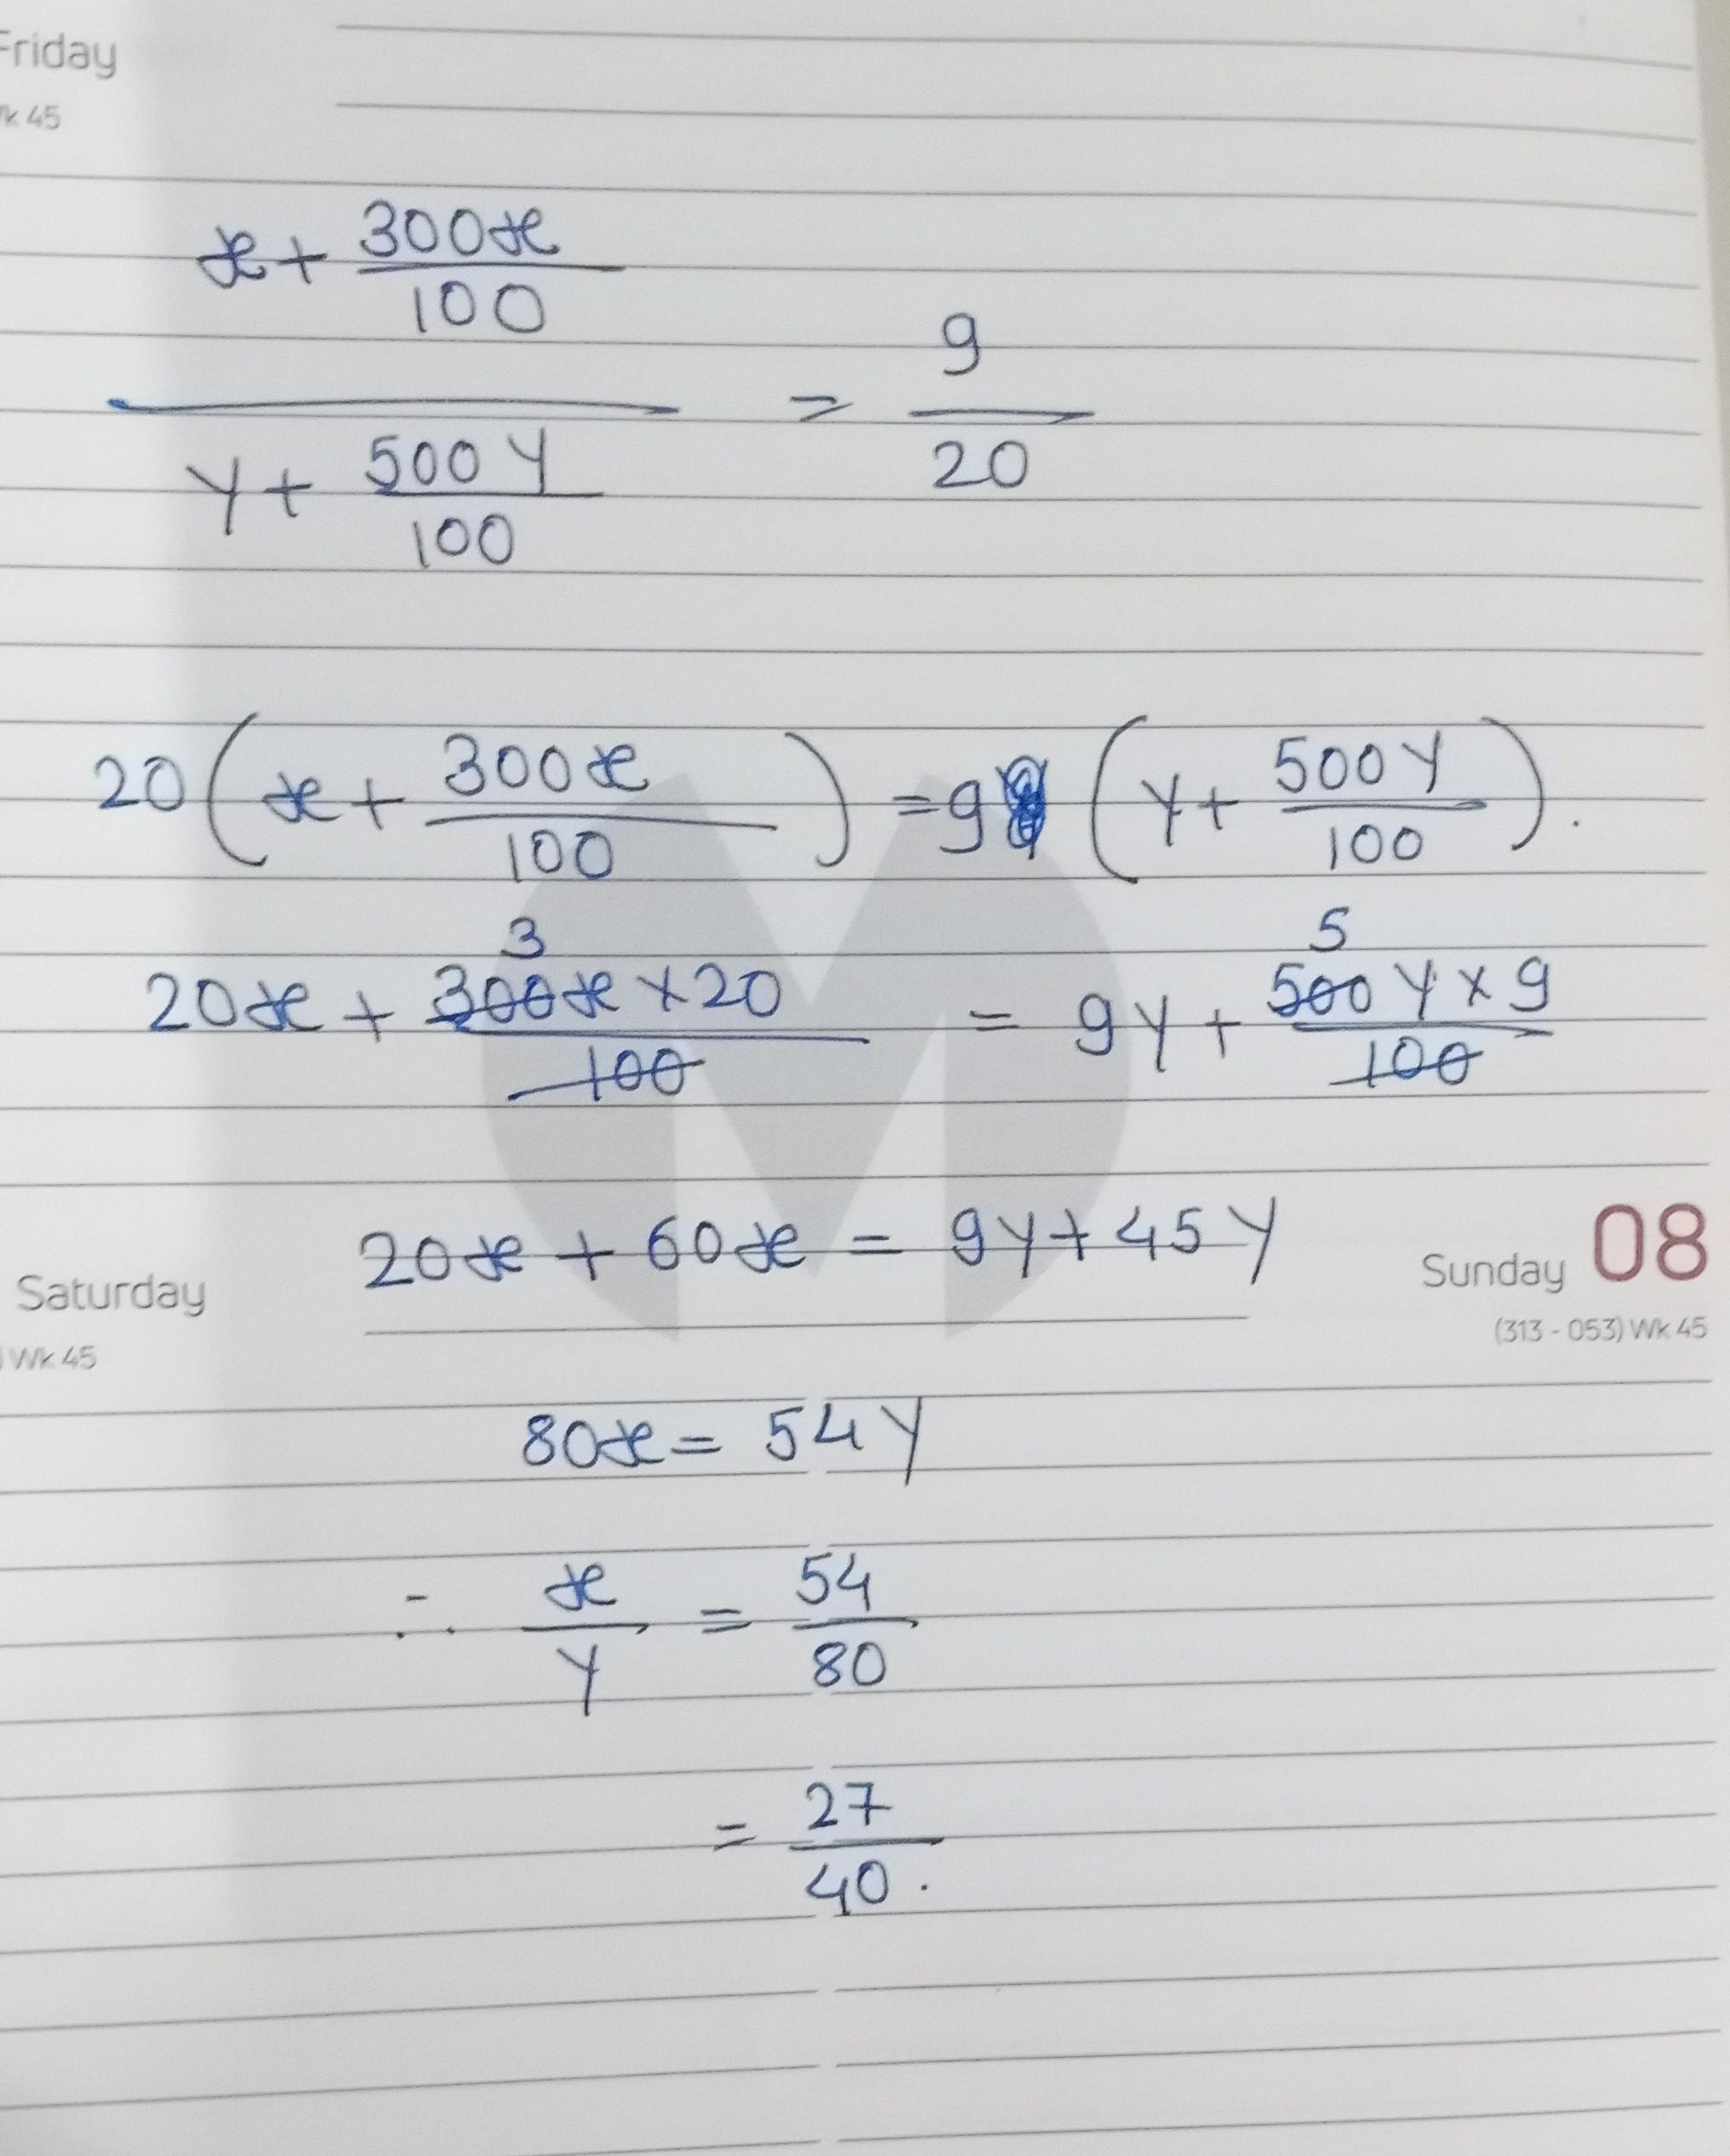 Friday
Wk 45
x + 300x/100
y + 500y/100
= 9/20
20(x + 300x/100) = 9(y + 500y/100).
3 5
20x + 300x × 20/100 = 9y + 500y × 9/100
20x + 60x = 9y + 45y
Saturday
Wk 45
Sunday 08
(313 - 053) Wk 45
80x = 54y
∴ x/y = 54/80
= 27/40.